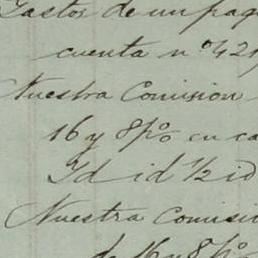 Gastos de un paq
cuenta nº 421
Nuestra Comision
16 y 8 p% en ca
Id id ½ id
Nuestra Comisi
de 16 y 8 p%